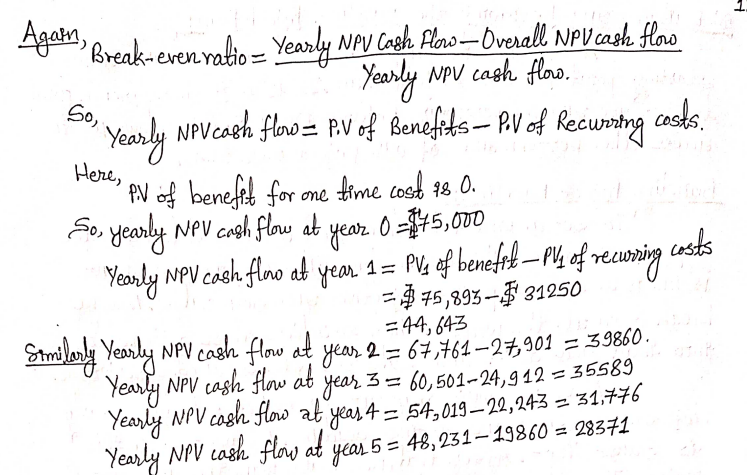 Again, Break-even ratio = Yearly NPV Cash Flow - Overall NPV cash flow
Yearly NPV cash flow.
So, Yearly NPV cash flow = P.V of Benefits - P.V of Recurring costs.
Here, P.V of benefit for one time cost is 0.
So, yearly NPV cash flow at year 0 = $75,000
Yearly NPV cash flow at year 1 = PV₁ of benefit - PV₁ of recurring costs
= $ 75,893 - $ 31250
= 44,643
Similarly Yearly NPV cash flow at year 2 = 67,761-27,901 = 39860.
Yearly NPV cash flow at year 3 = 60,501-24,912 = 35589
Yearly NPV cash flow at year 4 = 54,019-22,243 = 31,776
Yearly NPV cash flow at year 5 = 48,231-19860 = 28371